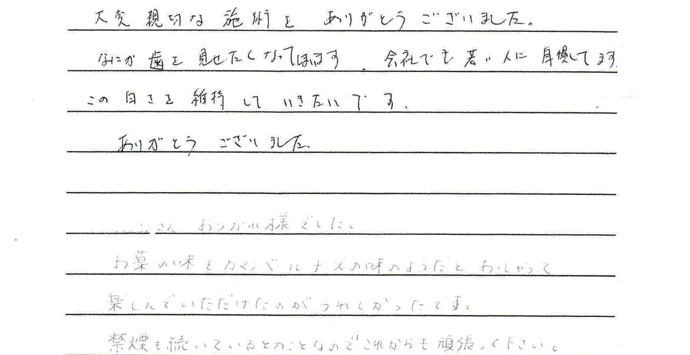 大変親切な施術を ありがとうございました。
なにか歯を見せたくなってます。会社でも若い人に自慢してます
この白さを維持していきたいです。
ありがとうございました
さん おつかれ様でした。
お薬の味もカマンベールチーズの味のようだとおっしゃって
楽しんでいただけたのがうれしかったです。
禁煙も続いているとのことなのでこれからも頑張って下さい。